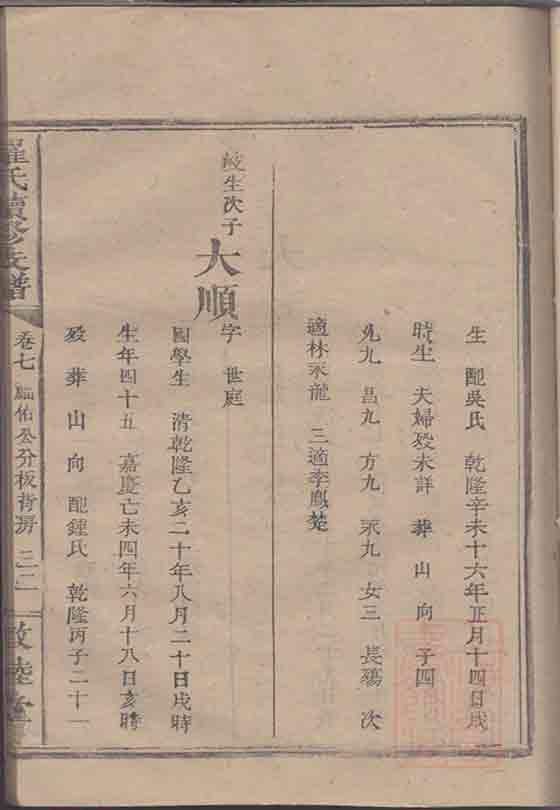 生 配吳氏 乾隆辛未十六年正月十四日戌
時生 夫婦歿未詳 葬 山 向 子四
九九 昌九 方九 永九 女三 長殤 次
適林永龍 三適李鳳楚
岐生次子 大順 字 世庭
國學生 清乾隆乙亥二十年八月二十日戌時
生年四十五 嘉慶亡未四年六月十八日亥時
歿 葬 山 向 配鍾氏 乾隆丙子二十一
羅氏續修支譜 卷七 佑公分板背房 二二 敦睦堂